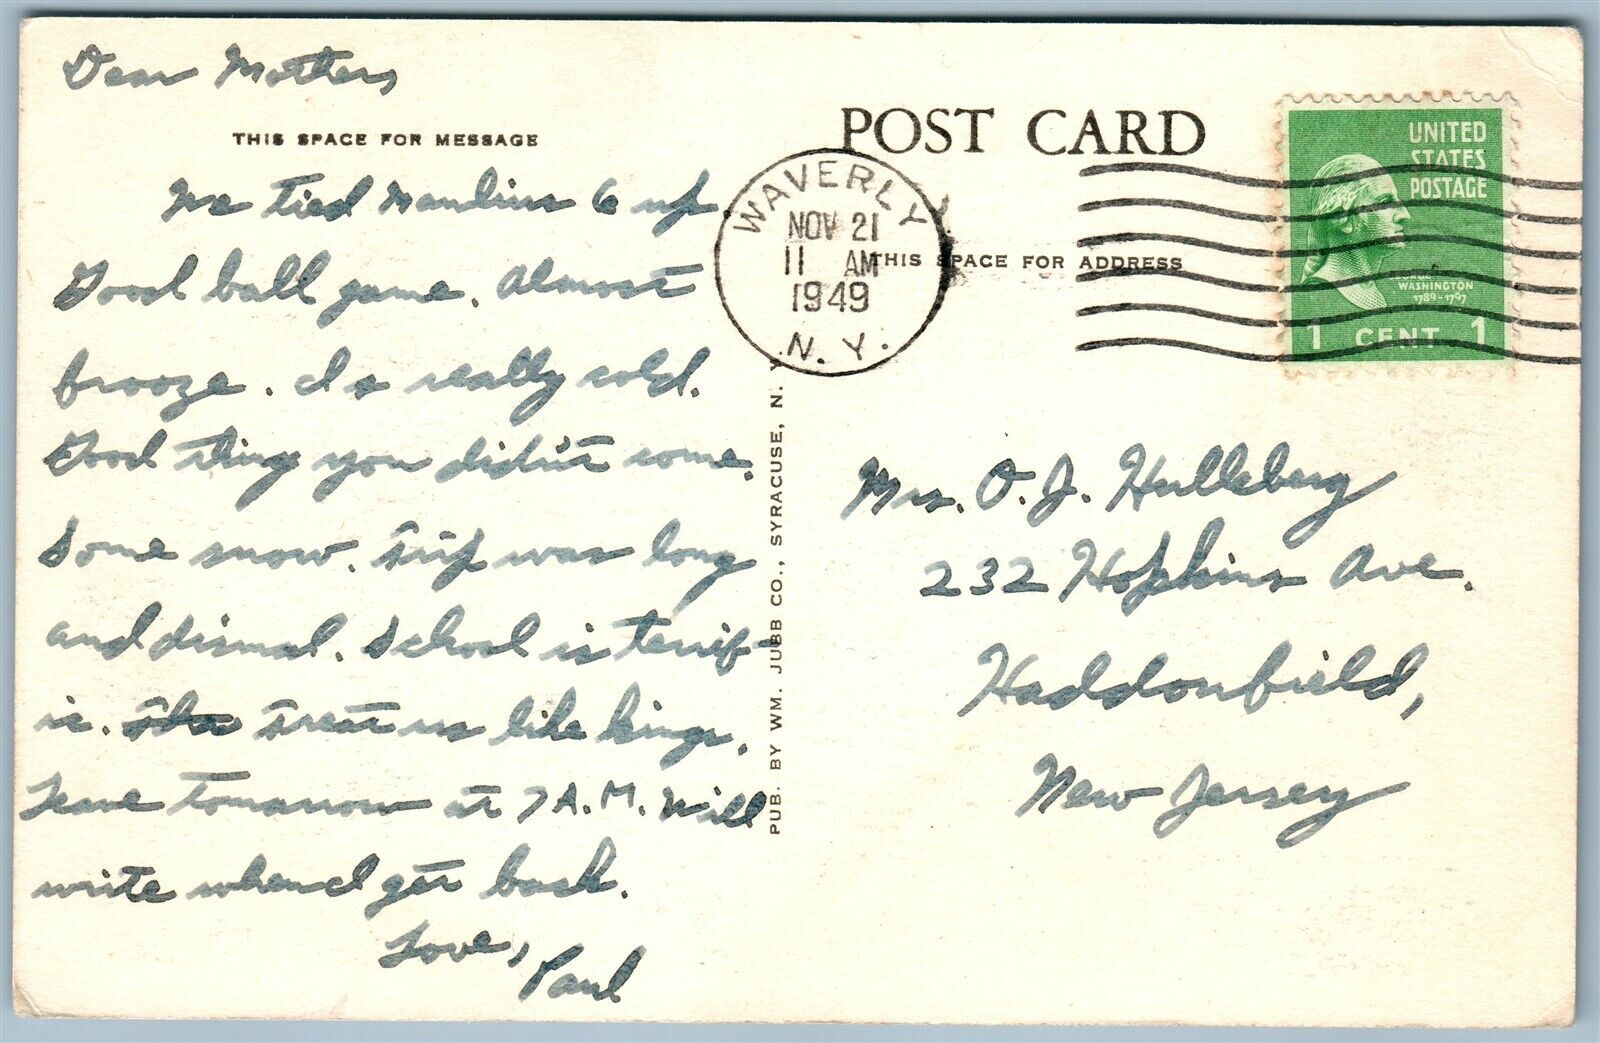 Dear Mother,
THIS SPACE FOR MESSAGE
We tied Manlius 6 up.
Good ball game. Almost
frooze. Is really cold.
Good thing you didn't come.
Some snow. Trip was long
and dismal. School is terrif-
ic. treat us like kings.
Leave tomarrow at 7 A.M. Will
write when I get back.
Love,
Paul
PUB. BY WM. JUBB CO., SYRACUSE, N. Y.
POST CARD
THIS SPACE FOR ADDRESS
WAVERLY
NOV 21
11 AM
1949
N. Y.
UNITED
STATES
POSTAGE
WASHINGTON
1789-1797
1 CENT 1
Mrs. O. J. Hulleberg
232 Hopkins Ave.
Haddonfield,
New Jersey